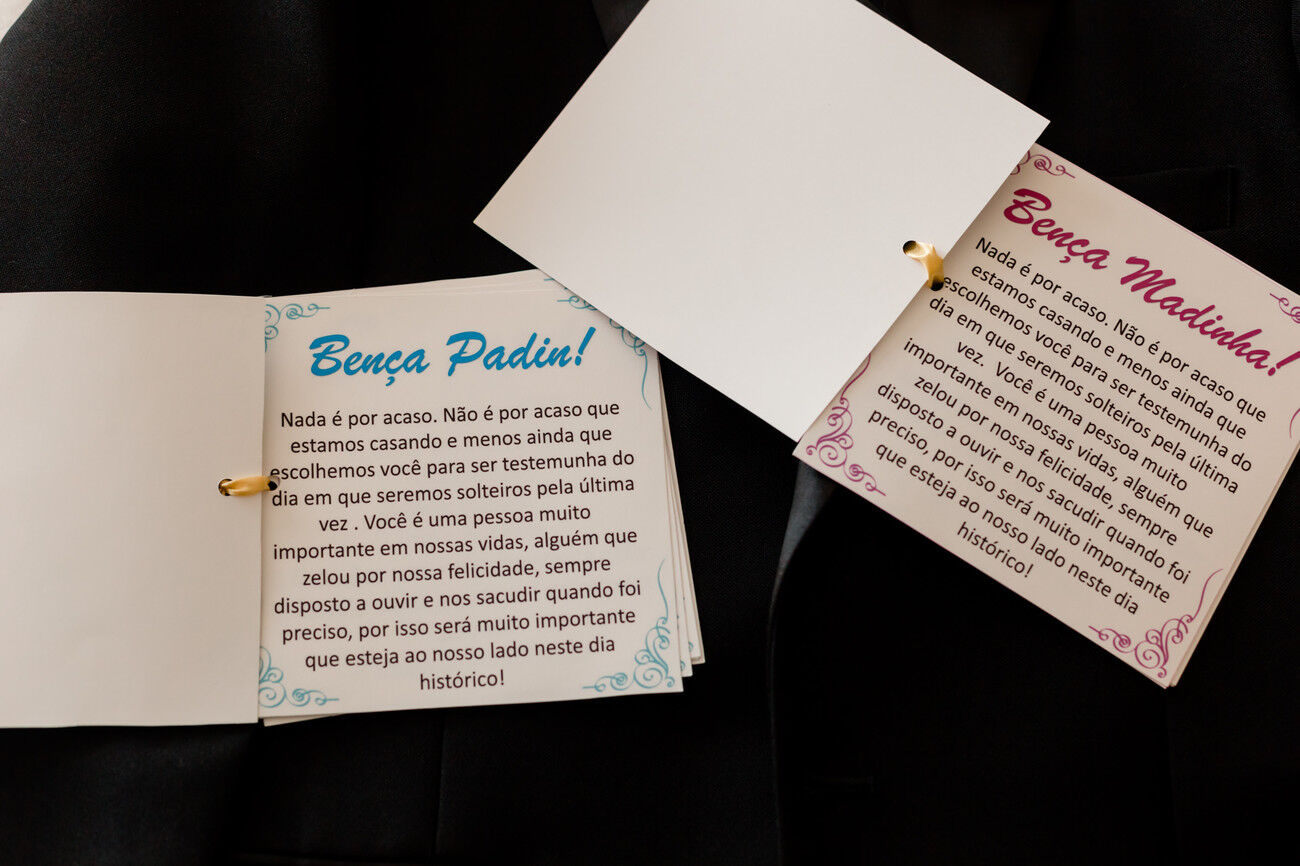 Bença Padin!
Nada é por acaso. Não é por acaso que
estamos casando e menos ainda que
escolhemos você para ser testemunha do
dia em que seremos solteiros pela última
vez . Você é uma pessoa muito
importante em nossas vidas, alguém que
zelou por nossa felicidade, sempre
disposto a ouvir e nos sacudir quando foi
preciso, por isso será muito importante
que esteja ao nosso lado neste dia
histórico!
Bença Madinha!
Nada é por acaso. Não é por acaso que
estamos casando e menos ainda que
escolhemos você para ser testemunha do
dia em que seremos solteiros pela última
vez. Você é uma pessoa muito
importante em nossas vidas, alguém que
zelou por nossa felicidade, sempre
disposto a ouvir e nos sacudir quando foi
preciso, por isso será muito importante
que esteja ao nosso lado neste dia
histórico!